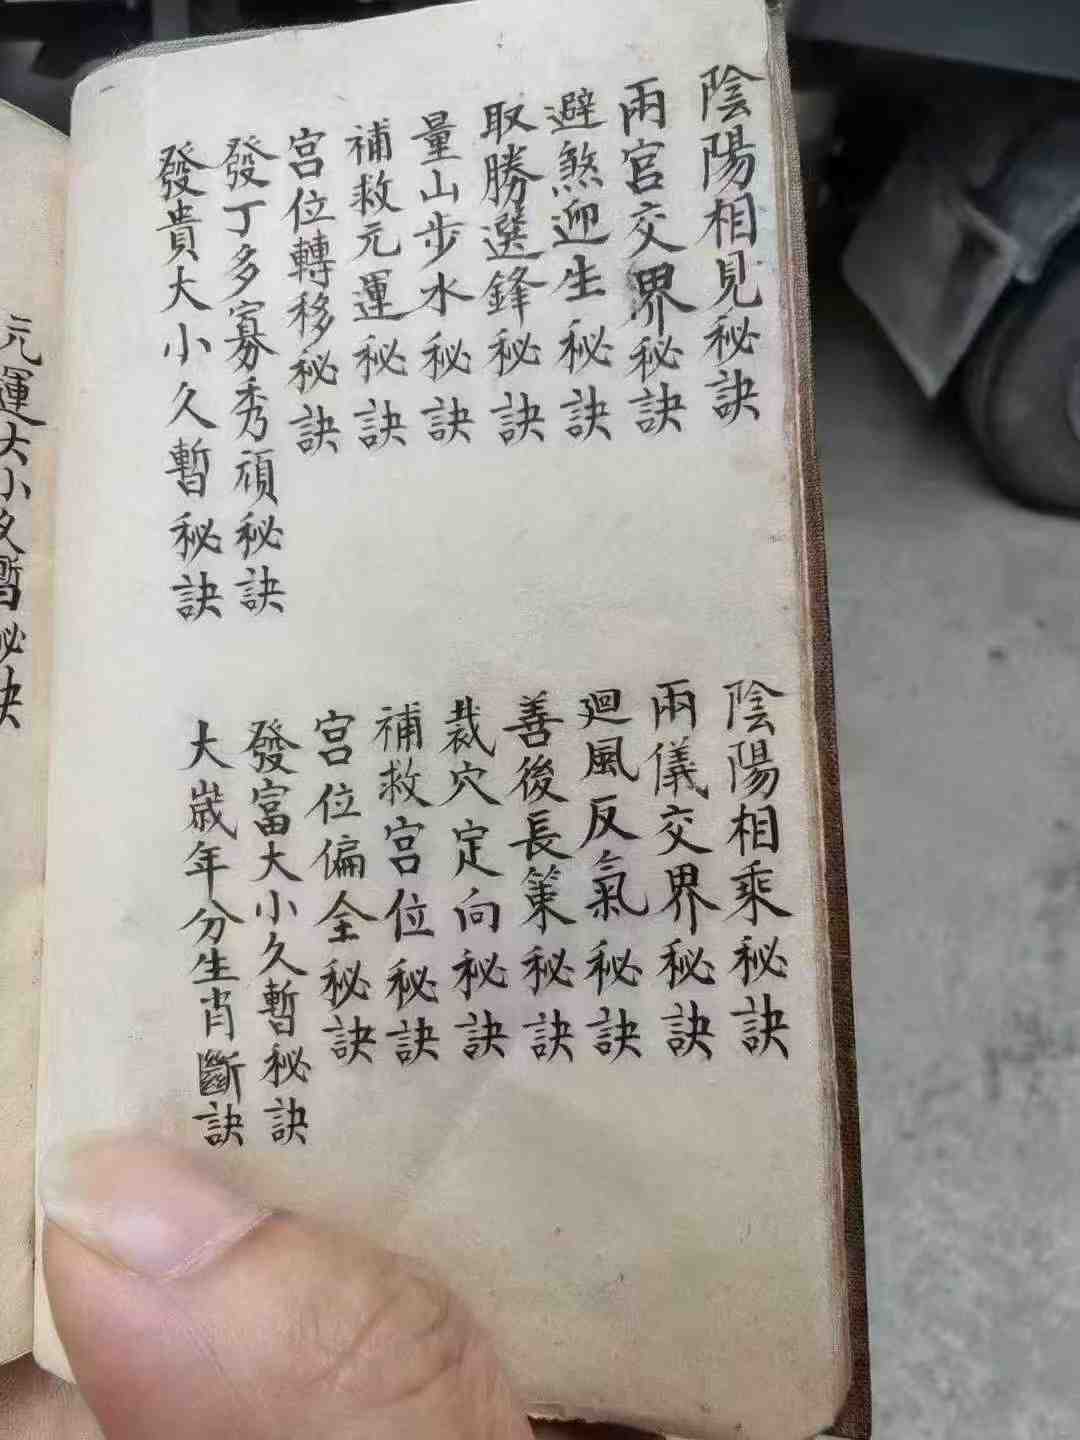 陰陽相見秘訣
兩宮交界秘訣
避煞迎生秘訣
取勝選鋒秘訣
量山步水秘訣
補救元運秘訣
宮位轉移秘訣
發丁多寡秀頑秘訣
發貴大小久暫秘訣
陰陽相乘秘訣
兩儀交界秘訣
廻風反氣秘訣
善後長策秘訣
裁穴定向秘訣
補救宮位秘訣
宮位偏全秘訣
發富大小久暫秘訣
大歲年分生肖斷訣
元運大小久暫秘訣